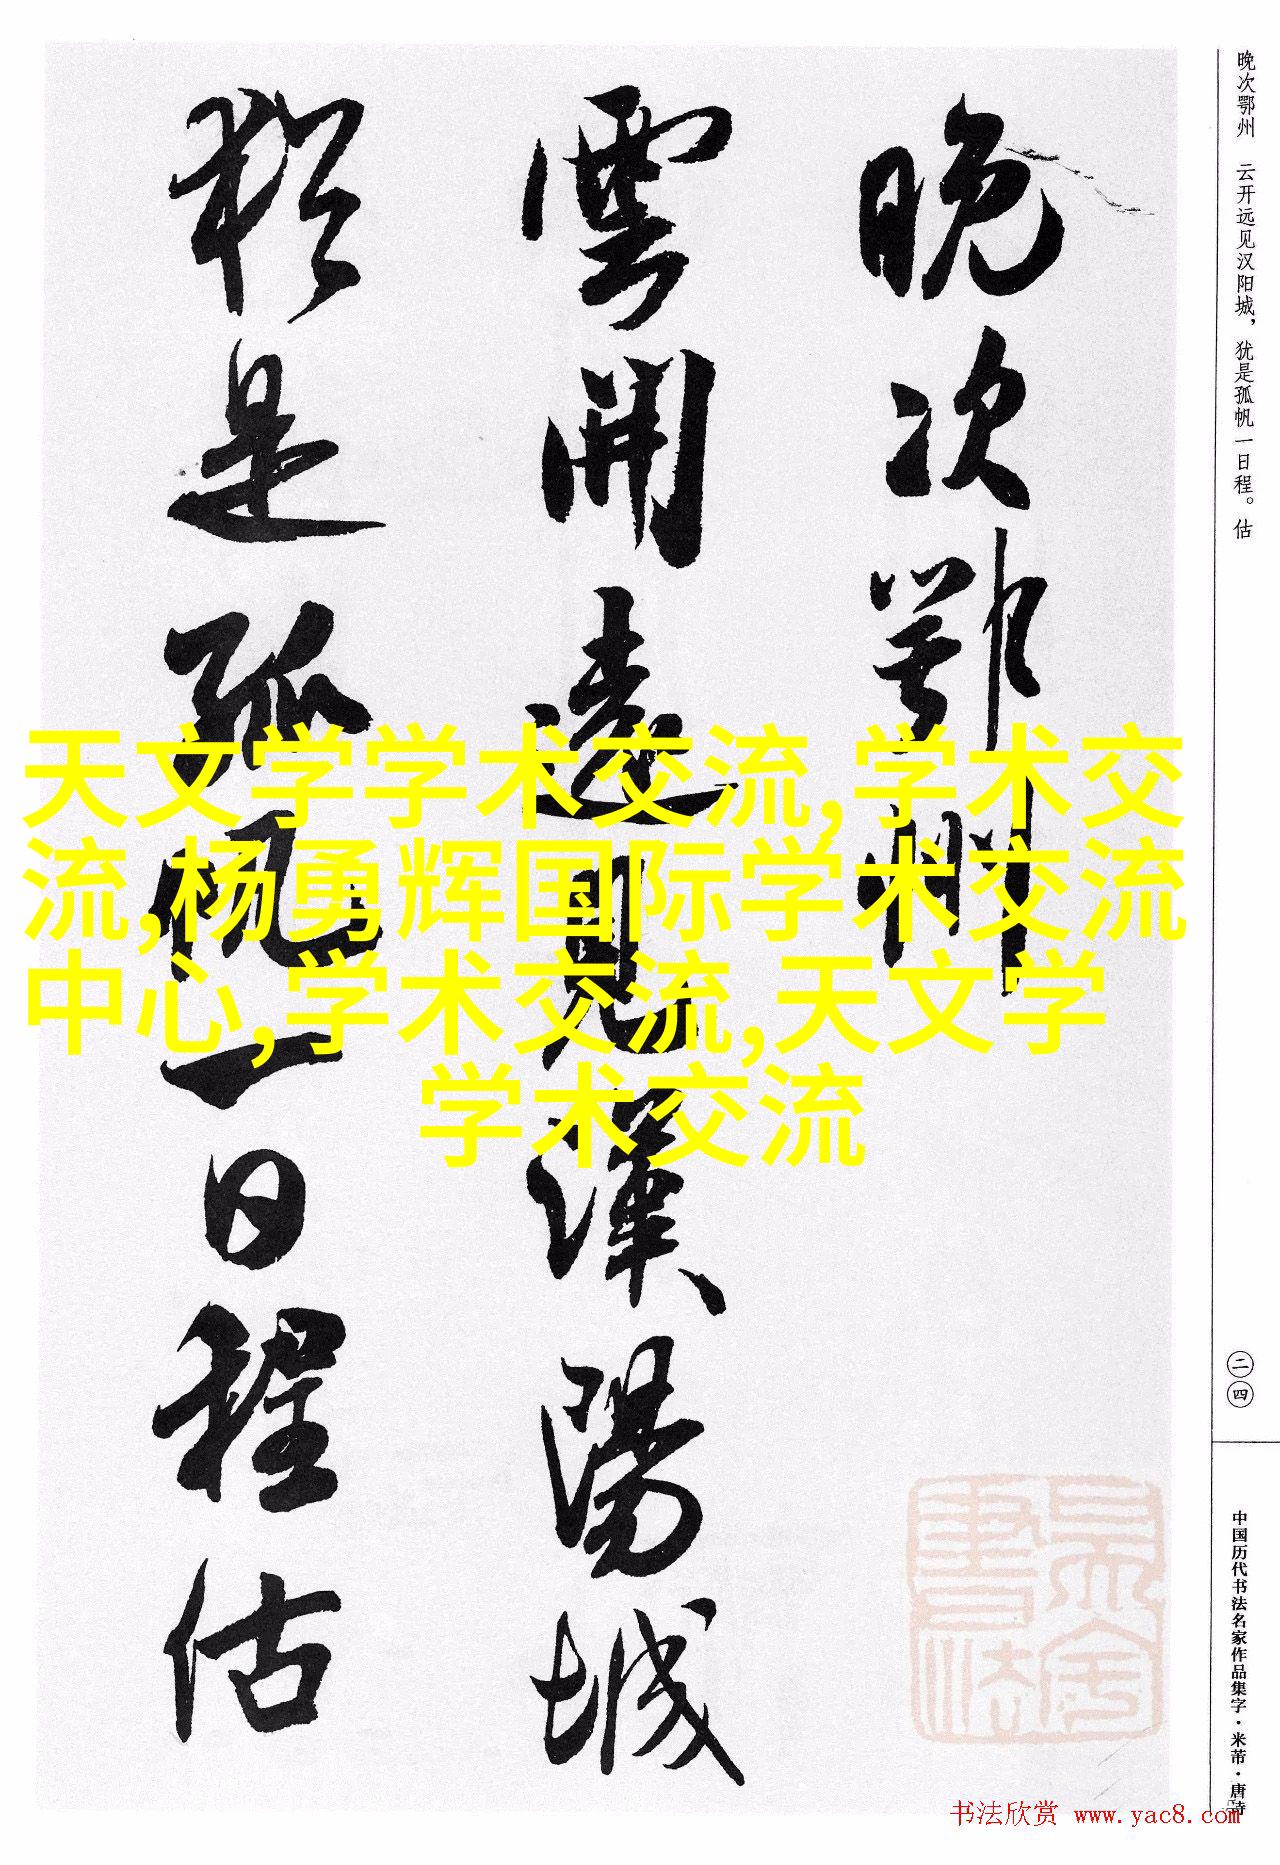 晚次鄂州
雲開遠見漢陽城
猶是孤帆一日程估
晚次鄂州 云开远见汉阳城，犹是孤帆一日程。估
二四
中国历代书法名家作品集字·米芾·唐诗
天文学学术交流,学术交
流,杨勇辉国际学术交流
中心,学术交流,天文学
学术交流
书法欣赏 www.yac8.com